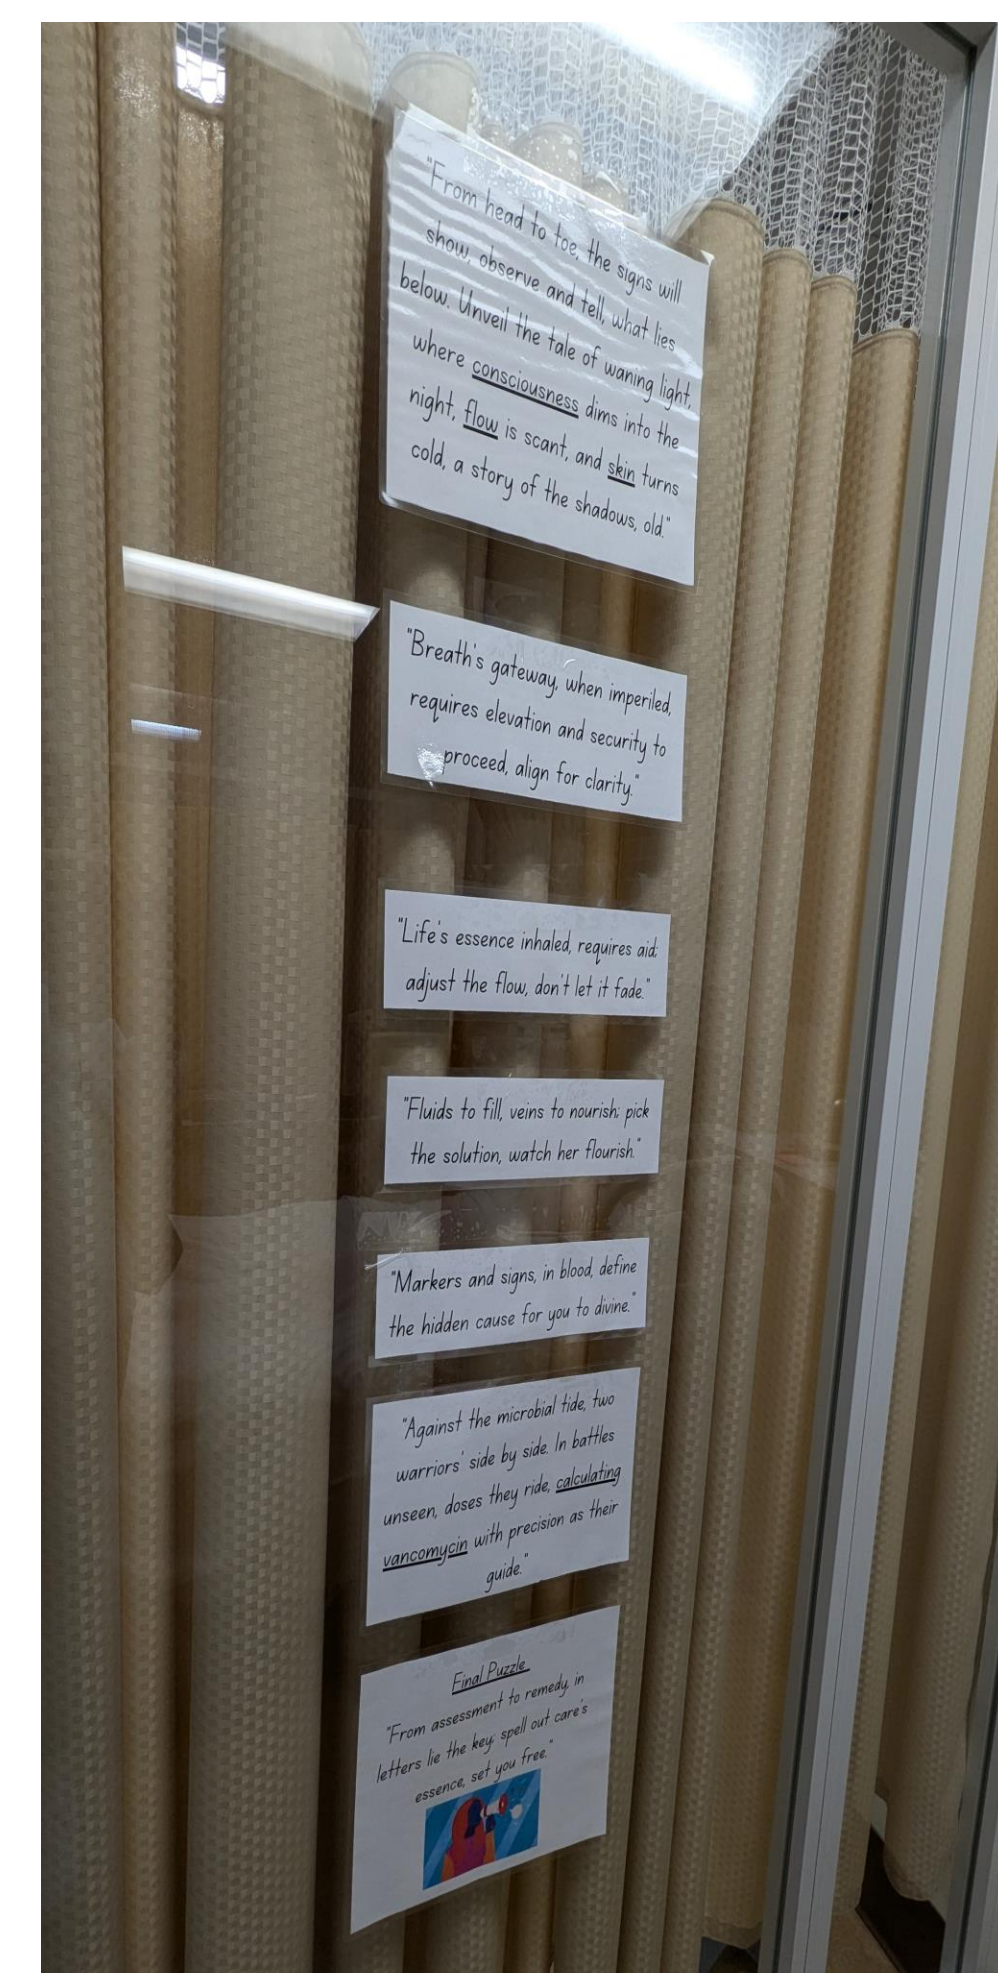 "From head to toe, the signs will
show, observe and tell, what lies
below. Unveil the tale of waning light,
where consciousness dims into the
night, flow is scant, and skin turns
cold, a story of the shadows, old."
"Breath's gateway, when imperiled,
requires elevation and security to
proceed, align for clarity."
"Life's essence inhaled, requires aid;
adjust the flow, don't let it fade."
"Fluids to fill, veins to nourish; pick
the solution, watch her flourish."
"Markers and signs, in blood, define
the hidden cause for you to divine."
"Against the microbial tide, two
warriors' side by side. In battles
unseen, doses they ride, calculating
vancomycin with precision as their
guide."
Final Puzzle
"From assessment to remedy, in
letters lie the key; spell out care's
essence, set you free."